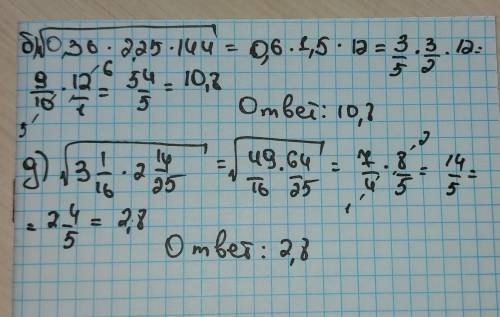 б) √0,36 · 2,25 · 144 = 0,6 · 1,5 · 12 = 3/5 · 3/2 · 12 =
9/10 · 12/1 = 54/5 = 10,8
5 6
Ответ: 10,8
д) √3 1/16 · 2 14/25 = √49/16 · 64/25 = 7/4 · 8/5 = 14/5 =
1 2
= 2 4/5 = 2,8
Ответ: 2,8